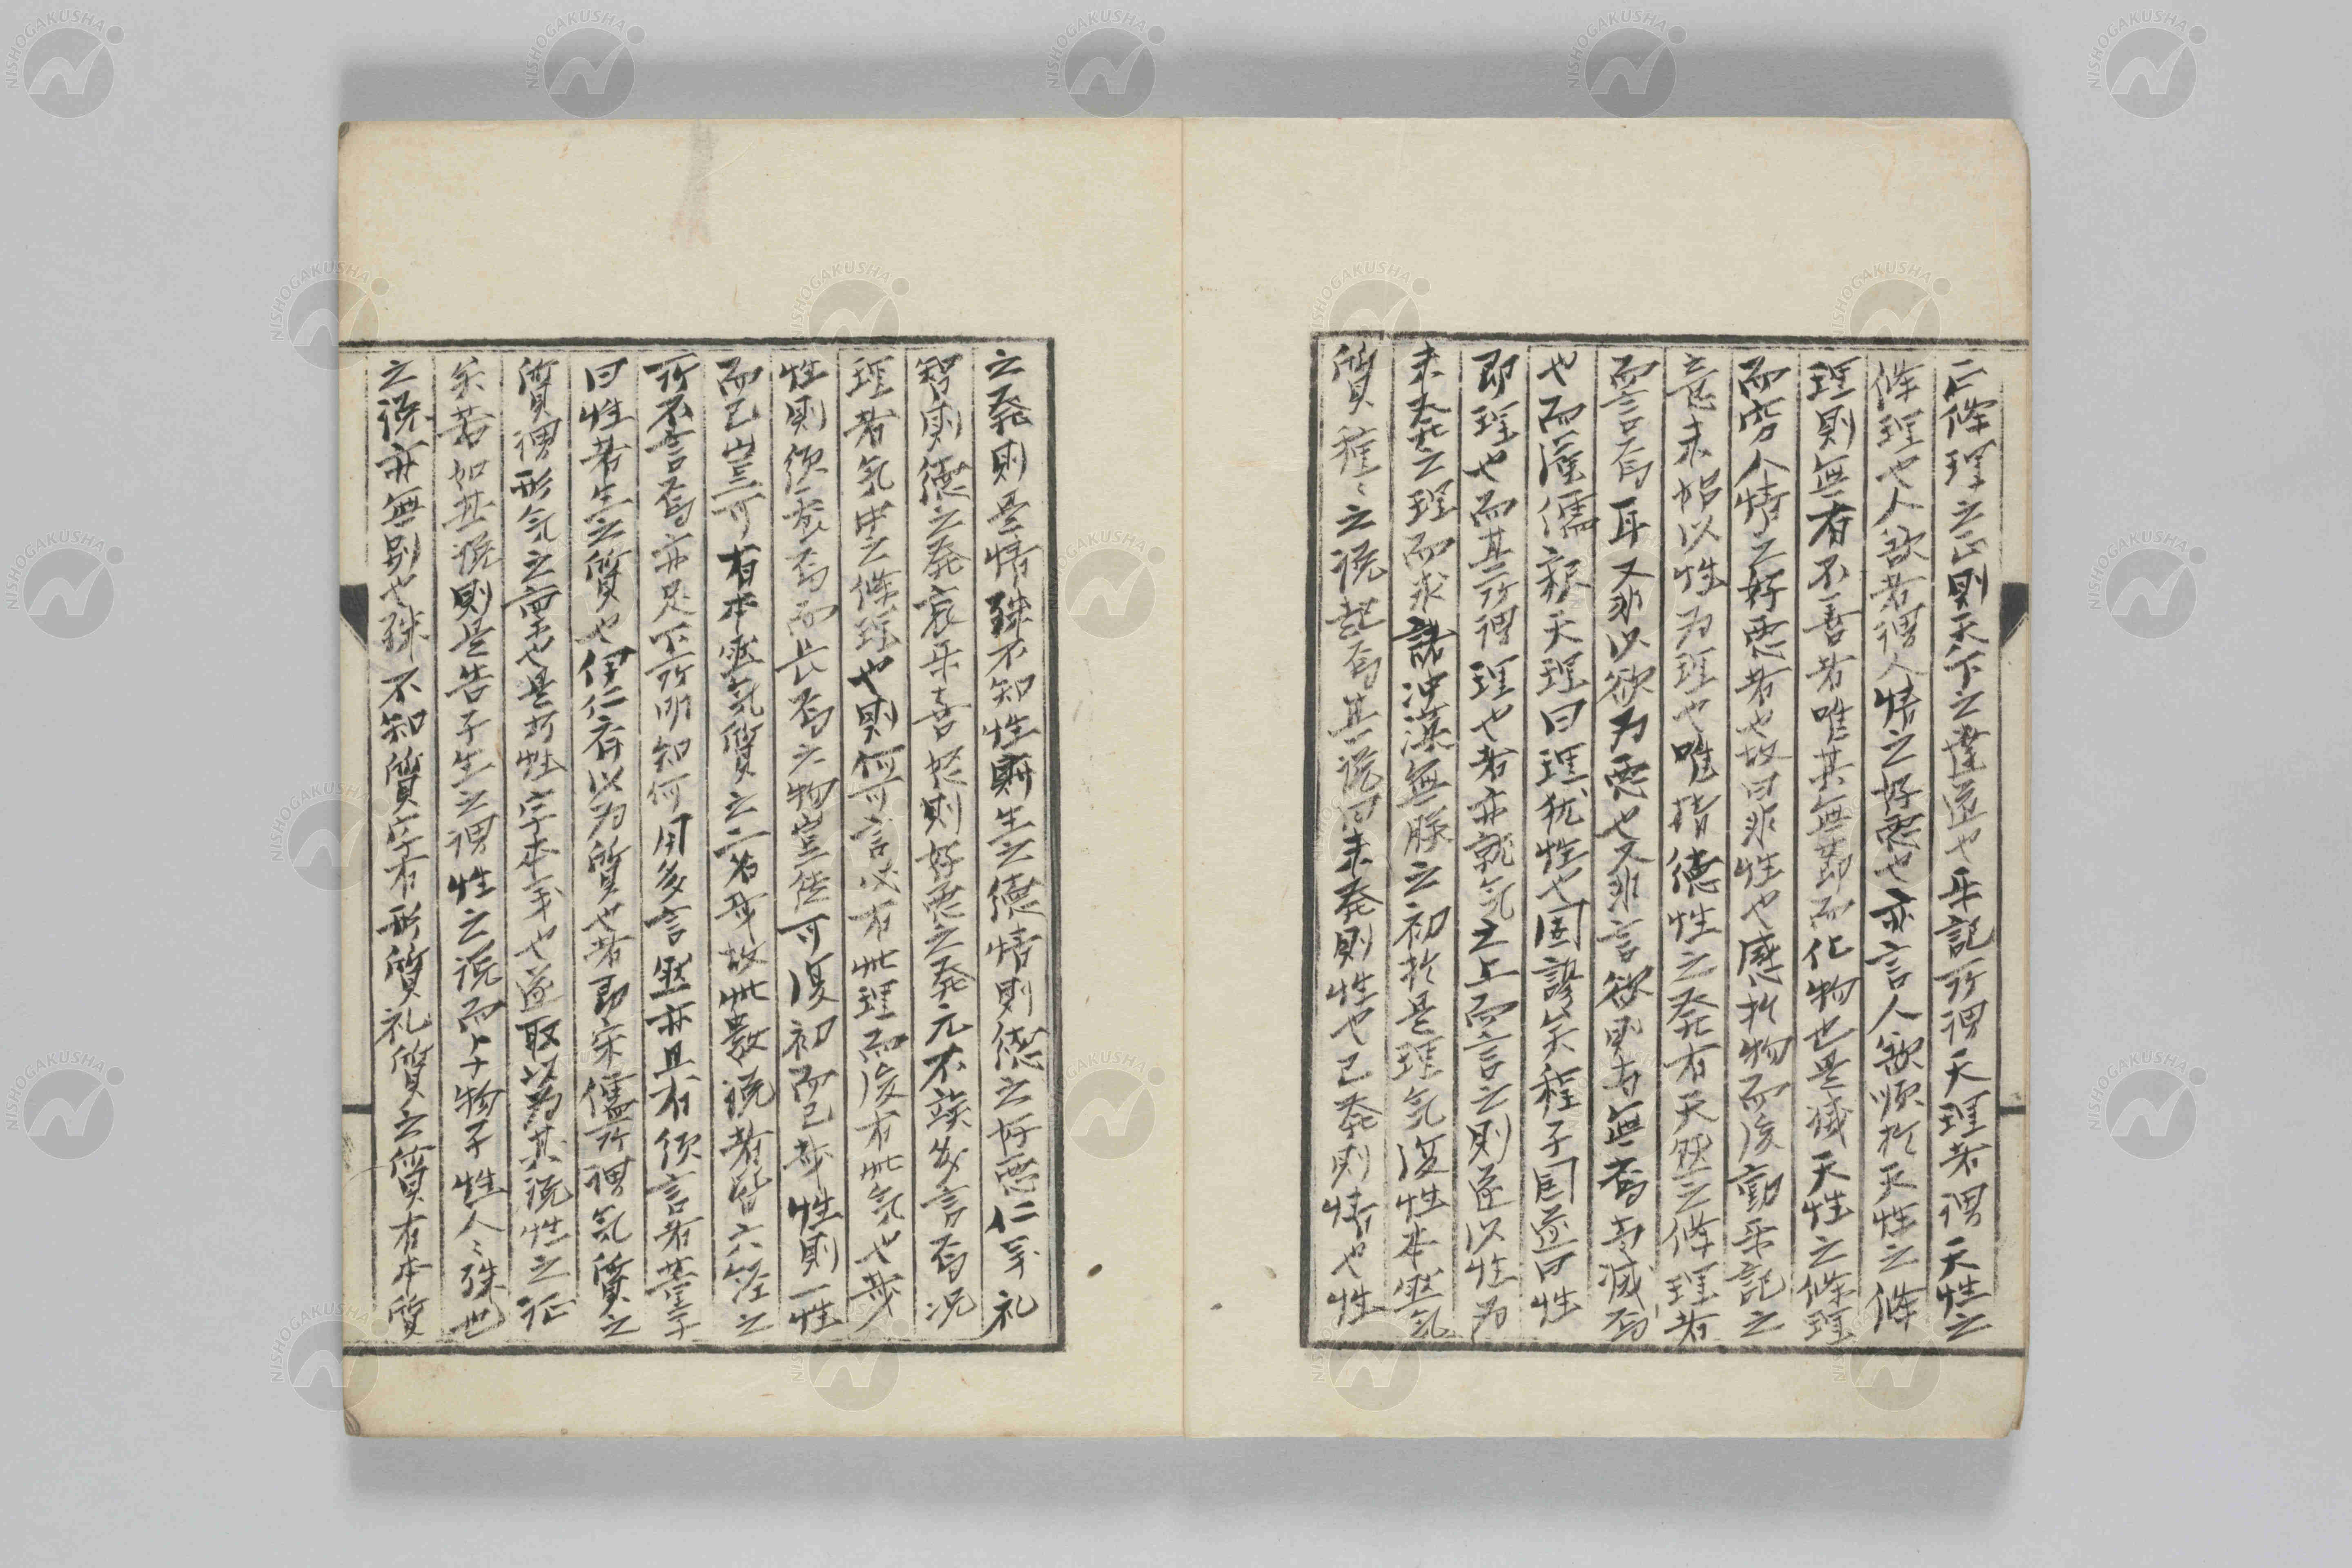 之條理之正則天下之達道也樂記所謂天理者謂天性之
條理也人欲者謂人情之好惡也亦言人欲順於天性之條
理則無有不善者唯其無節而化物也是滅天性之條理
而窮人情之好惡者也故曰非性也感於物而後動樂記之
意未嘗以性为理也唯指德性之發有天然之條理者
而言焉耳又非以欲为惡也又非言欲則尽無焉尽滅焉
也而漢儒釈天理曰理猶性也固謬矣程子因遂曰性
即理也而其所謂理也者亦就気之上而言之則遂以性为
未發之理而求諸沖漠無朕之初於是理気復性本然気
質種〻之説起焉其説曰未發則性也已發則情也性
之發則是情殊不知性則生之德情則德之好惡仁義礼
智則德之發哀樂喜怒則好惡之發元不竢多言焉況
理者気中之條理也則何可言必有此理而後有此気也哉
性則須養焉而長焉之物豈徒可復初而已哉性則一性
而已豈可有本然気質之二者哉故此数説者皆六経之
所不言焉亦足下所明知何用多言然亦且有須言者董子
曰性者生之質也伊仁斎以为質也者即宋儒所謂気質之
質謂形気之
也是於性字本末也遂取以為其説性之証
矣若如其説則是告子生之謂性之説而与物子性人〻殊也
之説亦無別也殊不知質字有形質礼質之質有本質